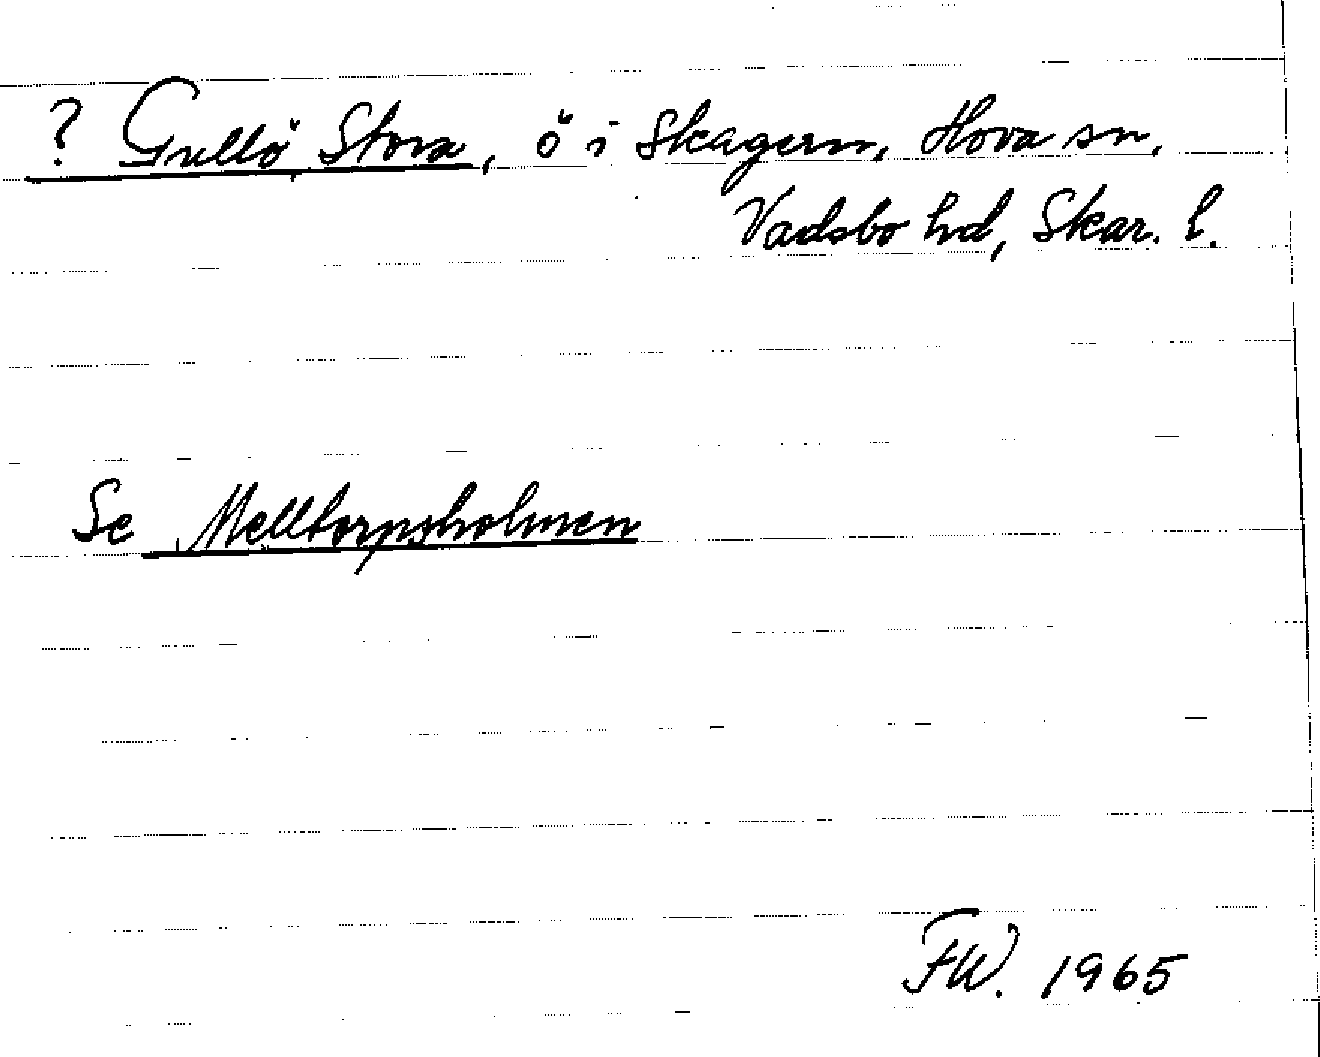 ? Gullö, Stora, ö i Skagern, Hova sn,
Vadsbo hd, Skar. l.
Se Melltorpsholmen
FW. 1965